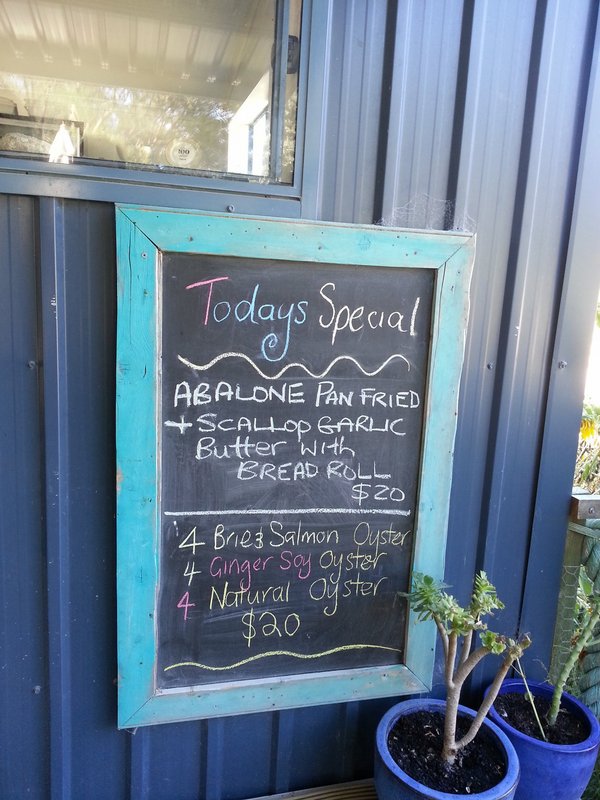 Todays Special
ABALONE PAN FRIED
+ SCALLOP GARLIC
Butter with
BREAD ROLL
$20
4 Brie & Salmon Oyster
4 Ginger Soy Oyster
4 Natural Oyster
$20